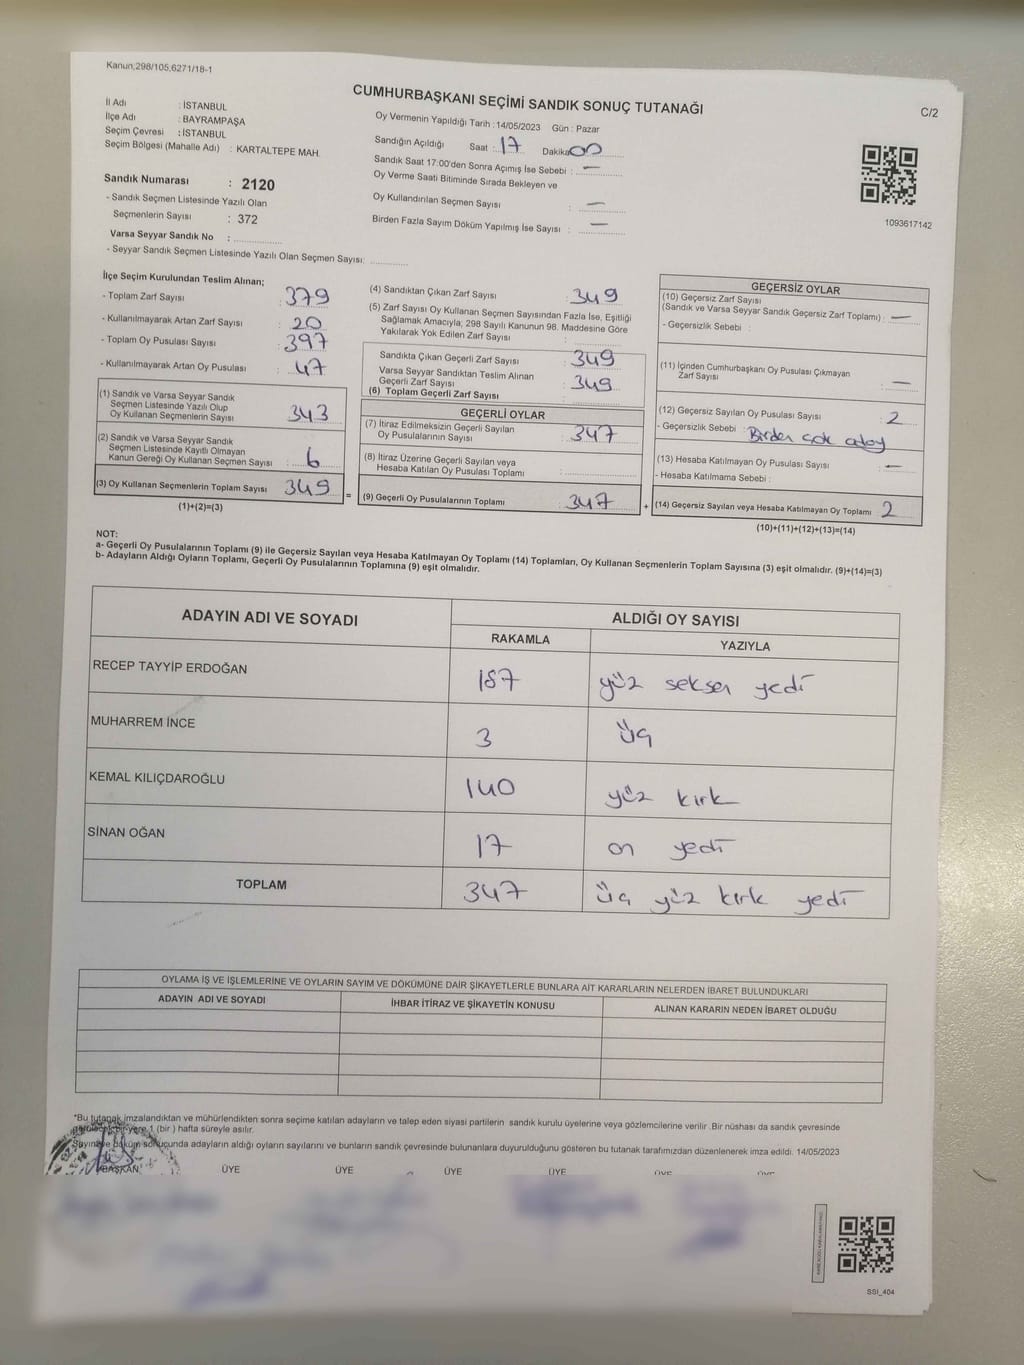 Kanun;298/105,6271/18-1
CUMHURBAŞKANI SEÇİMİ SANDIK SONUÇ TUTANAĞI
C/2
İl Adı : İSTANBUL
İlçe Adı : BAYRAMPAŞA
Seçim Çevresi : İSTANBUL
Seçim Bölgesi (Mahalle Adı) : KARTALTEPE MAH.
Sandık Numarası : 2120
- Sandık Seçmen Listesinde Yazılı Olan
Seçmenlerin Sayısı : 372
Varsa Seyyar Sandık No :
- Seyyar Sandık Seçmen Listesinde Yazılı Olan Seçmen Sayısı:
Oy Vermenin Yapıldığı Tarih : 14/05/2023 Gün : Pazar
Sandığın Açıldığı Saat : 17 Dakika 00
Sandık Saat 17:00'den Sonra Açımış İse Sebebi : —
Oy Verme Saati Bitiminde Sırada Bekleyen ve
Oy Kullandırılan Seçmen Sayısı : —
Birden Fazla Sayım Döküm Yapılmış İse Sayısı : —
1093617142
İlçe Seçim Kurulundan Teslim Alınan;
- Toplam Zarf Sayısı : 379
- Kullanılmayarak Artan Zarf Sayısı : 20
- Toplam Oy Pusulası Sayısı : 397
- Kullanılmayarak Artan Oy Pusulası : 47
(1) Sandık ve Varsa Seyyar Sandık
Seçmen Listesinde Yazılı Olup
Oy Kullanan Seçmenlerin Sayısı : 343
(2) Sandık ve Varsa Seyyar Sandık
Seçmen Listesinde Kayıtlı Olmayan
Kanun Gereği Oy Kullanan Seçmen Sayısı : 6
(3) Oy Kullanan Seçmenlerin Toplam Sayısı 349
(1)+(2)=(3)
=
(4) Sandıktan Çıkan Zarf Sayısı : 349
(5) Zarf Sayısı Oy Kullanan Seçmen Sayısından Fazla İse, Eşitliği
Sağlamak Amacıyla, 298 Sayılı Kanunun 98. Maddesine Göre
Yakılarak Yok Edilen Zarf Sayısı :
Sandıkta Çıkan Geçerli Zarf Sayısı : 349
Varsa Seyyar Sandıktan Teslim Alınan
Geçerli Zarf Sayısı : 349
(6) Toplam Geçerli Zarf Sayısı :
GEÇERLİ OYLAR
(7) İtiraz Edilmeksizin Geçerli Sayılan
Oy Pusulalarının Sayısı : 347
(8) İtiraz Üzerine Geçerli Sayılan veya
Hesaba Katılan Oy Pusulası Toplamı :
(9) Geçerli Oy Pusulalarının Toplamı 347
+
GEÇERSİZ OYLAR
(10) Geçersiz Zarf Sayısı
(Sandık ve Varsa Seyyar Sandık Geçersiz Zarf Toplamı) : —
- Geçersizlik Sebebi :
(11) İçinden Cumhurbaşkanı Oy Pusulası Çıkmayan
Zarf Sayısı : —
(12) Geçersiz Sayılan Oy Pusulası Sayısı : 2
- Geçersizlik Sebebi : Birden çok aday
(13) Hesaba Katılmayan Oy Pusulası Sayısı : —
- Hesaba Katılmama Sebebi :
(14) Geçersiz Sayılan veya Hesaba Katılmayan Oy Toplamı 2
(10)+(11)+(12)+(13)=(14)
NOT:
a- Geçerli Oy Pusulalarının Toplamı (9) ile Geçersiz Sayılan veya Hesaba Katılmayan Oy Toplamı (14) Toplamları, Oy Kullanan Seçmenlerin Toplam Sayısına (3) eşit olmalıdır. (9)+(14)=(3)
b- Adayların Aldığı Oyların Toplamı, Geçerli Oy Pusulalarının Toplamına (9) eşit olmalıdır.
ADAYIN ADI VE SOYADI ALDIĞI OY SAYISI
RAKAMLA YAZIYLA
RECEP TAYYİP ERDOĞAN 187 yüz seksen yedi
MUHARREM İNCE 3 üç
KEMAL KILIÇDAROĞLU 140 yüz kırk
SİNAN OĞAN 17 on yedi
TOPLAM 347 üç yüz kırk yedi
OYLAMA İŞ VE İŞLEMLERİNE VE OYLARIN SAYIM VE DÖKÜMÜNE DAİR ŞİKAYETLERLE BUNLARA AİT KARARLARIN NELERDEN İBARET BULUNDUKLARI
ADAYIN ADI VE SOYADI İHBAR İTİRAZ VE ŞİKAYETİN KONUSU ALINAN KARARIN NEDEN İBARET OLDUĞU
*Bu tutanak imzalandıktan ve mühürlendikten sonra seçime katılan adayların ve talep eden siyasi partilerin sandık kurulu üyelerine veya gözlemcilerine verilir .Bir nüshası da sandık çevresinde
1 (bir ) hafta süreyle asılır.
Sayım ve döküm sonucunda adayların aldığı oyların sayılarını ve bunların sandık çevresinde bulunanlara duyurulduğunu gösteren bu tutanak tarafımızdan düzenlenerek imza edildi. 14/05/2023
BAŞKAN ÜYE ÜYE ÜYE ÜYE ÜYE ÜYE
SSI_404